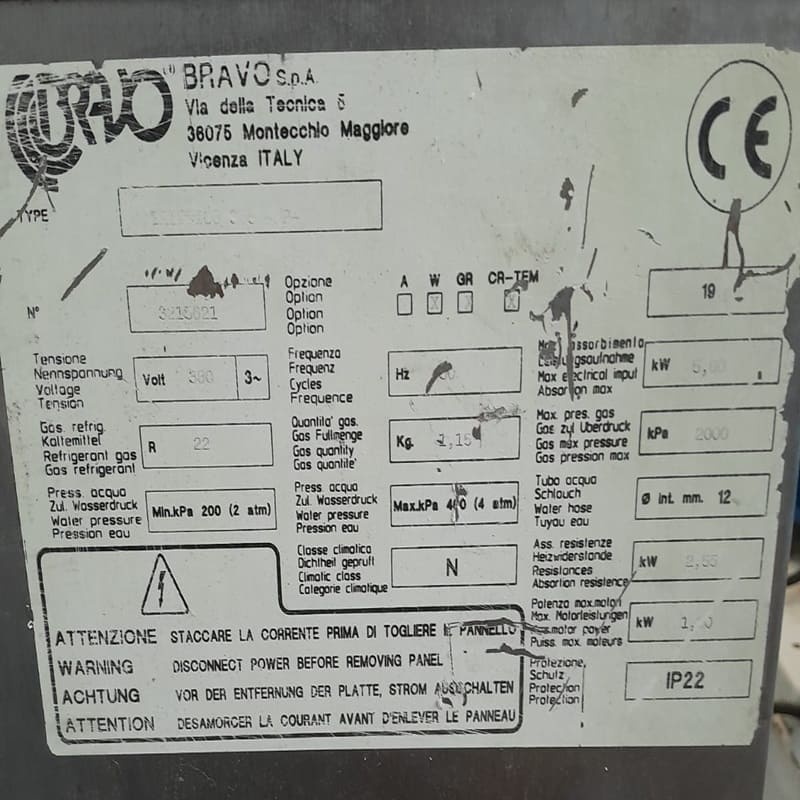 BRAVO
BRAVO S.p.A.
Via della Tecnica 5
36075 Montecchio Maggiore
Vicenza ITALY
CE
TYPE
N°
3215621
Opzione
Option
Option
Option
A W GR CR-TEM
X X X
19
Tensione
Nennspannung
Voltage
Tension
Volt 380 3~
Frequenza
Frequenz
Cycles
Frequence
Hz
assorbimento
Leistungsaufnahme
Max electrical imput
Absortion max
kW
Gas. refrig.
Kaltemittel
Refrigerant gas
Gas refrigerant
R 22
Quantita' gas.
Gas Fullmenge
Gas quantity
Gas quantite'
Kg. 1,15
Max. pres. gas
Gas zul Uberdruck
Gas max pressure
Gas pression max
kPa 2000
Press. acqua
Zul. Wasserdruck
Water pressure
Pression eau
Min.kPa 200 (2 atm)
Press. acqua
Zul. Wasserdruck
Water pressure
Pression eau
Max.kPa 400 (4 atm)
Tubo acqua
Schlauch
Water hose
Tuyau eau
Ø int. mm. 12
Classe climatica
Dichtheit gepruft
Climatic class
Categorie climatique
N
Ass. resistenze
Heizwiderstande
Resistances
Absortion resistence
kW 2,55
Potenza max.motori
Max. Motorleistungen
motor power
Puiss. max. moteurs
kW
Protezione
Schutz
Protection
Protection
IP22
ATTENZIONE STACCARE LA CORRENTE PRIMA DI TOGLIERE IL PANNELLO
WARNING DISCONNECT POWER BEFORE REMOVING PANEL
ACHTUNG VOR DER ENTFERNUNG DER PLATTE, STROM AUSSCHALTEN
ATTENTION DESAMORCER LA COURANT AVANT D'ENLEVER LE PANNEAU